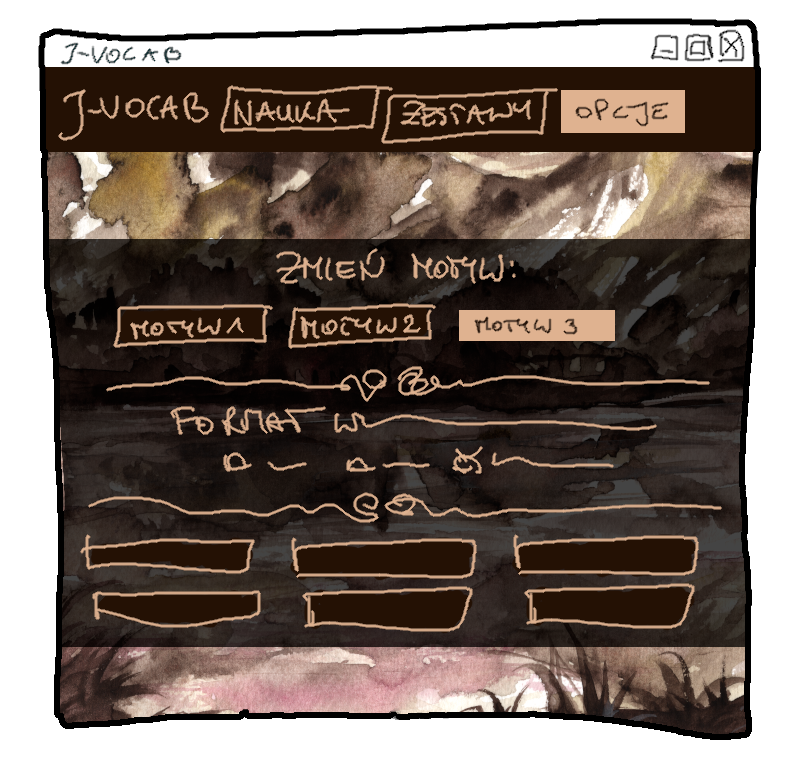 J-VOCAB
J-VOCAB NAUKA ZESTAWY OPCJE
ZMIEŃ MOTYW:
MOTYW 1 MOTYW 2 MOTYW 3
FORMAT W